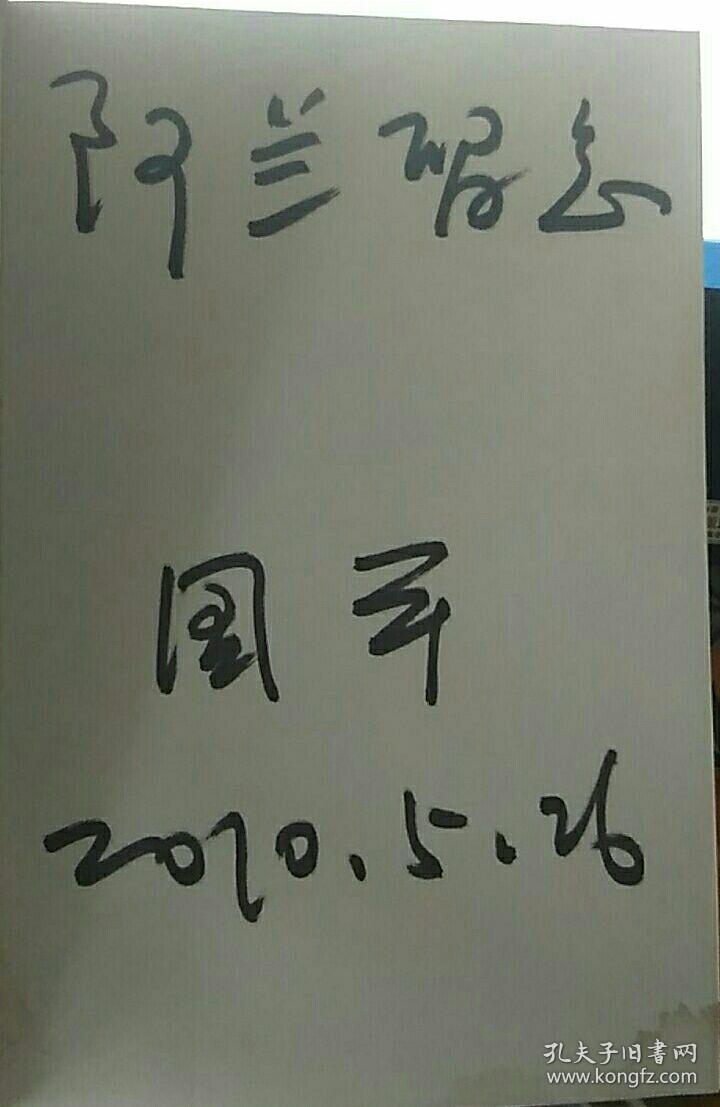 阿兰留念
2010.5.26
孔夫子旧書网
www.kongfz.com